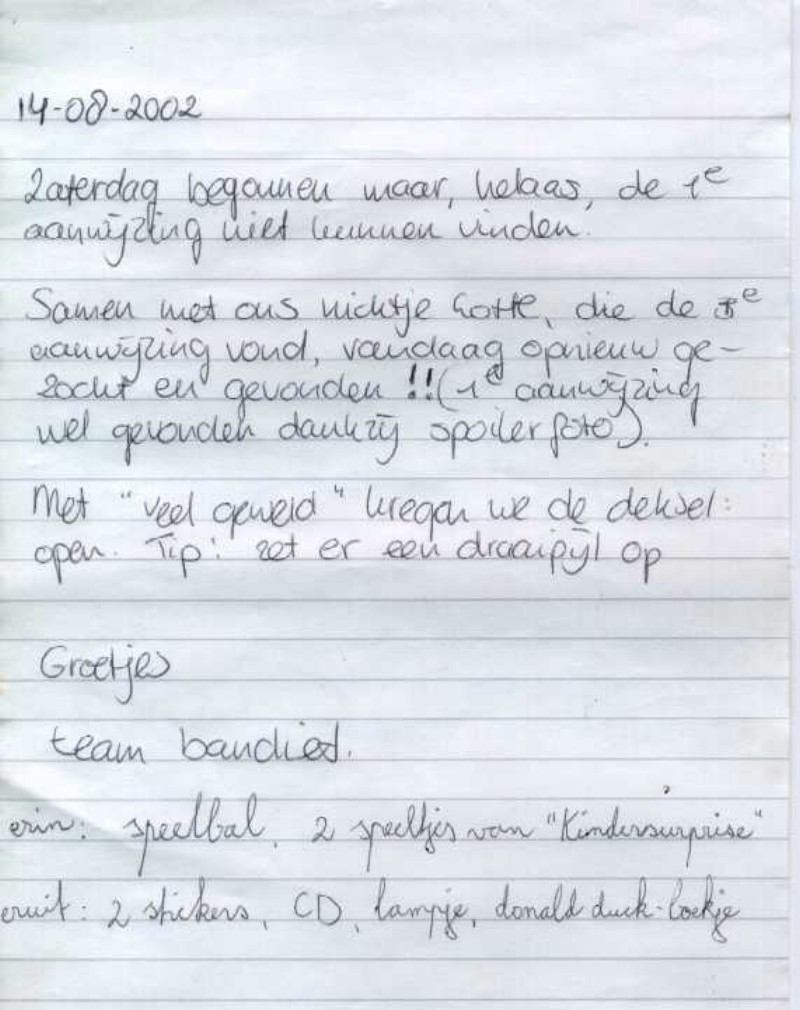 14-08-2002
Zaterdag begonnen maar, helaas, de 1e
aanwijzing niet kunnen vinden.
Samen met ons nichtje Lotte, die de e
aanwijzing vond, vandaag opnieuw ge-
zocht en gevonden !! (1e aanwijzing
wel gevonden dankzij spoilerfoto).
Met "veel geweld" kregen we de deksel
open. Tip: zet er een draaipijl op
Groetjes
team bandied.
erin: speelbal, 2 speeltjes van "Kindersurprise"
eruit: 2 stickers, CD, lampje, donald duck-boekje